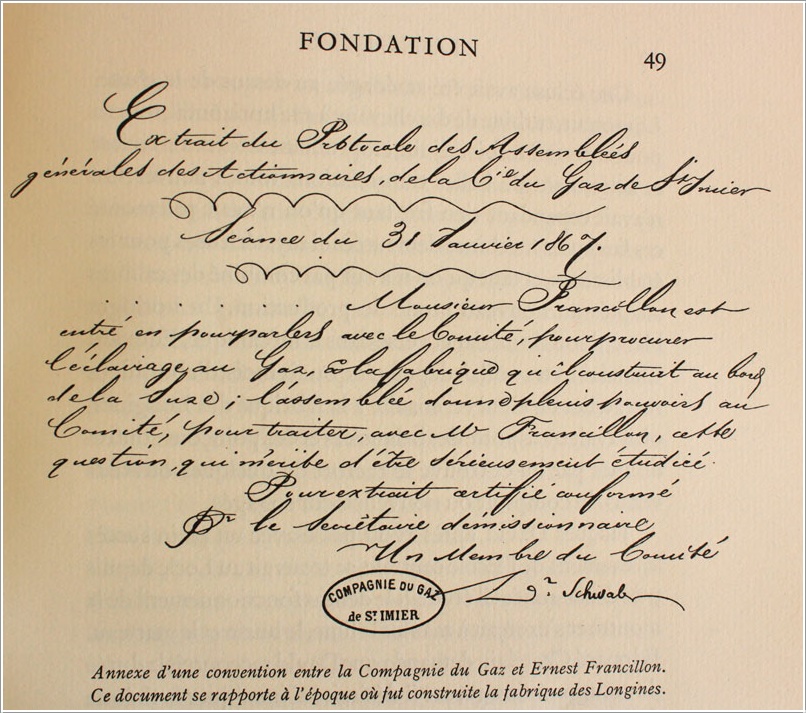 FONDATION
49
Extrait du Protocole des Assemblées
générales des Actionnaires, de la Cie du Gaz de St Imier
Séance du 31 Janvier 1867.
Monsieur Francillon est
entré en pourparlers avec le Comité, pour procurer
l'éclairage au Gaz, à la fabrique qu'il construit au bord
de la Suze; l'assemblée donne pleins pouvoirs au
Comité, pour traiter, avec Mr Francillon, cette
question, qui mérite d'être sérieusement étudiée.
Pour extrait certifié conforme
Pr le Secrétaire démissionnaire
Un Membre du Comité
Dr. Schwab
COMPAGNIE DU GAZ
de ST. IMIER
Annexe d'une convention entre la Compagnie du Gaz et Ernest Francillon.
Ce document se rapporte à l'époque où fut construite la fabrique des Longines.